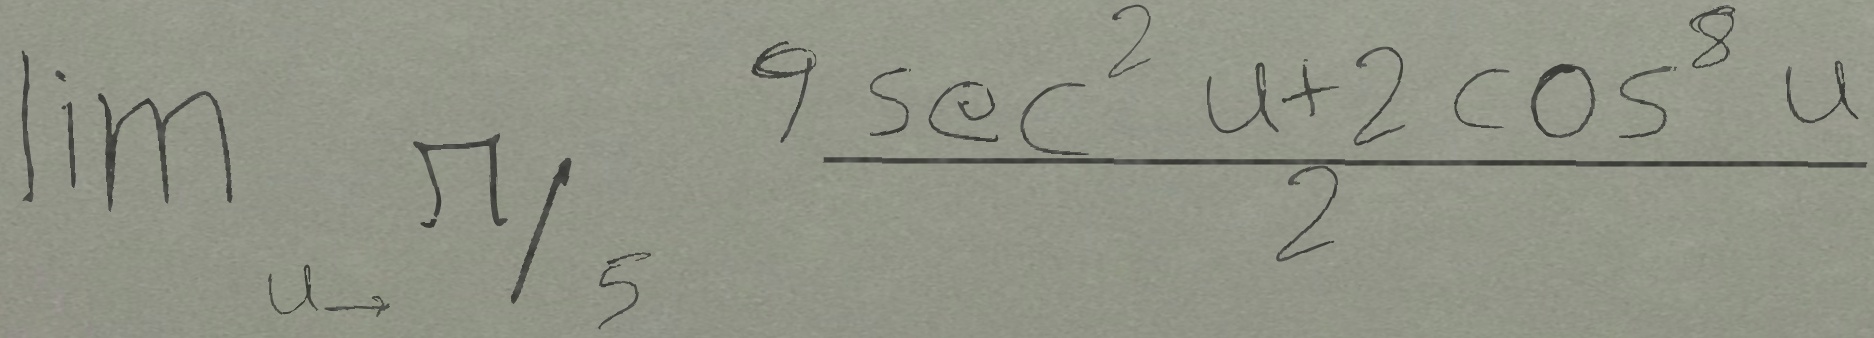 lim u→π/5 (9 sec² u + 2 cos⁸ u)/2